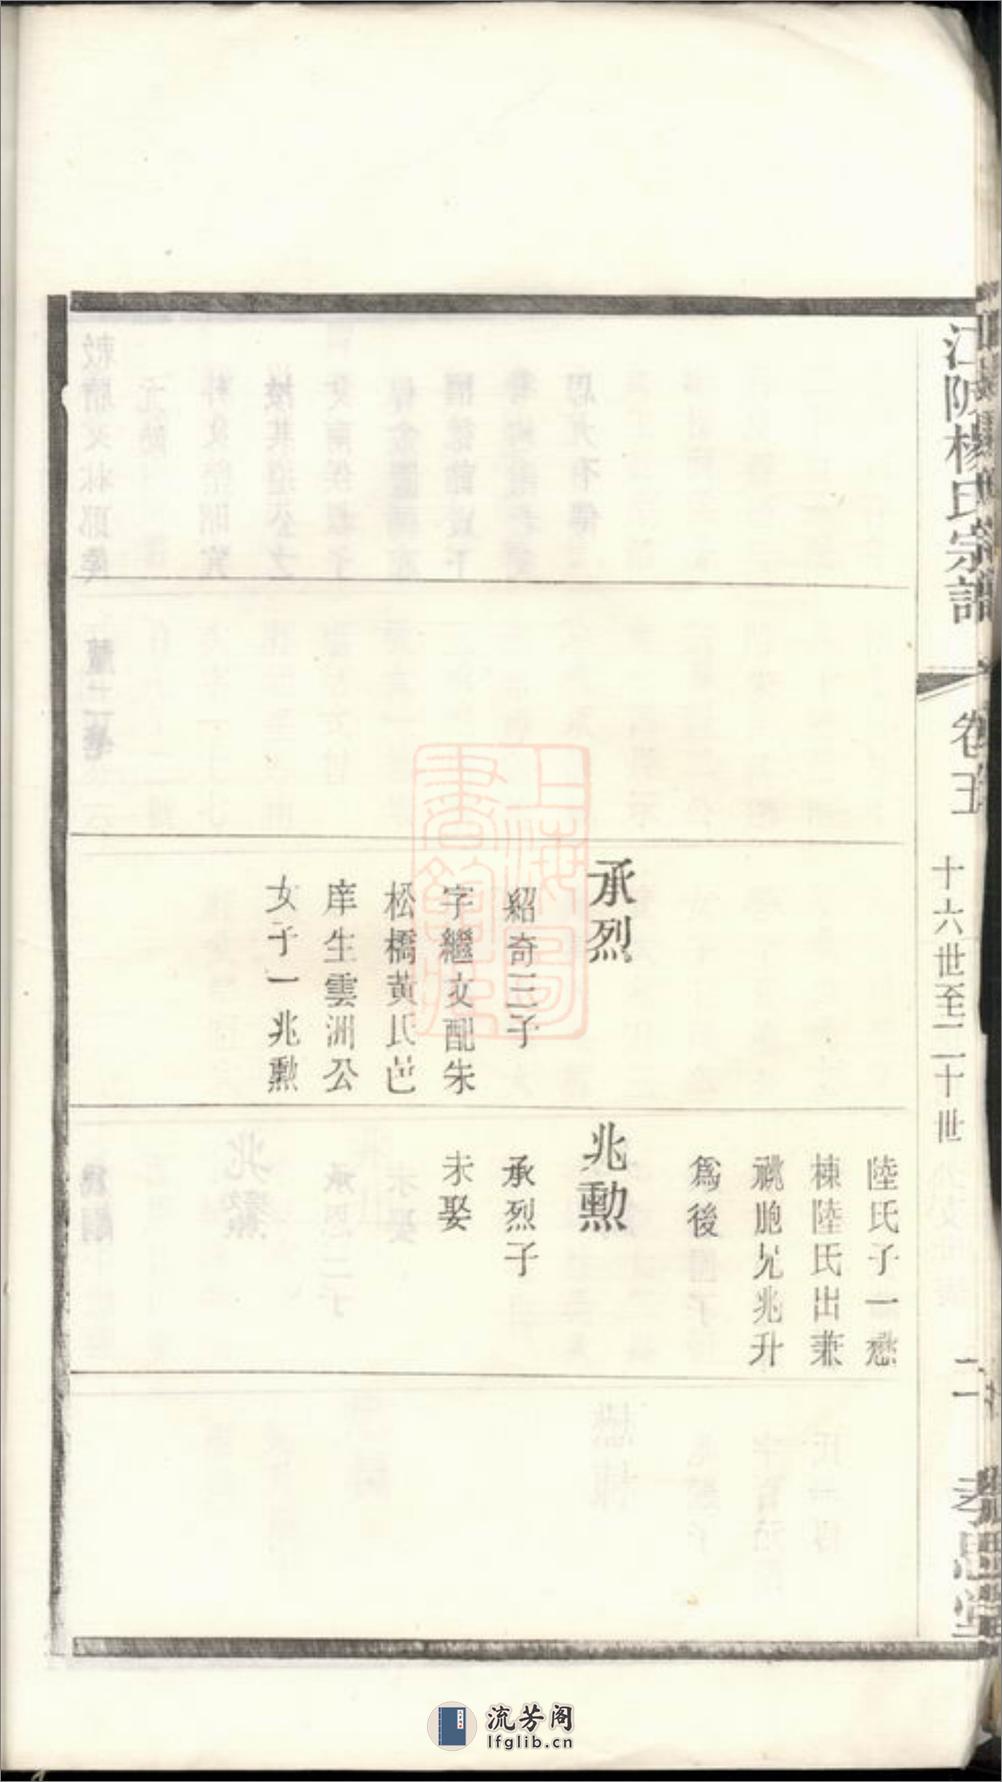 江陰楊氏宗譜
卷五
十六世至二十世
二
孝思堂
承烈
紹奇三子
字繼文配朱
松橋黃氏邑
庠生雲洲公
女子一兆勲
陸氏子一懋
棟陸氏出兼
祧胞兄兆升
爲後
兆勲
承烈子
未娶
上海圖書館藏
流芳阁
lfglib.cn